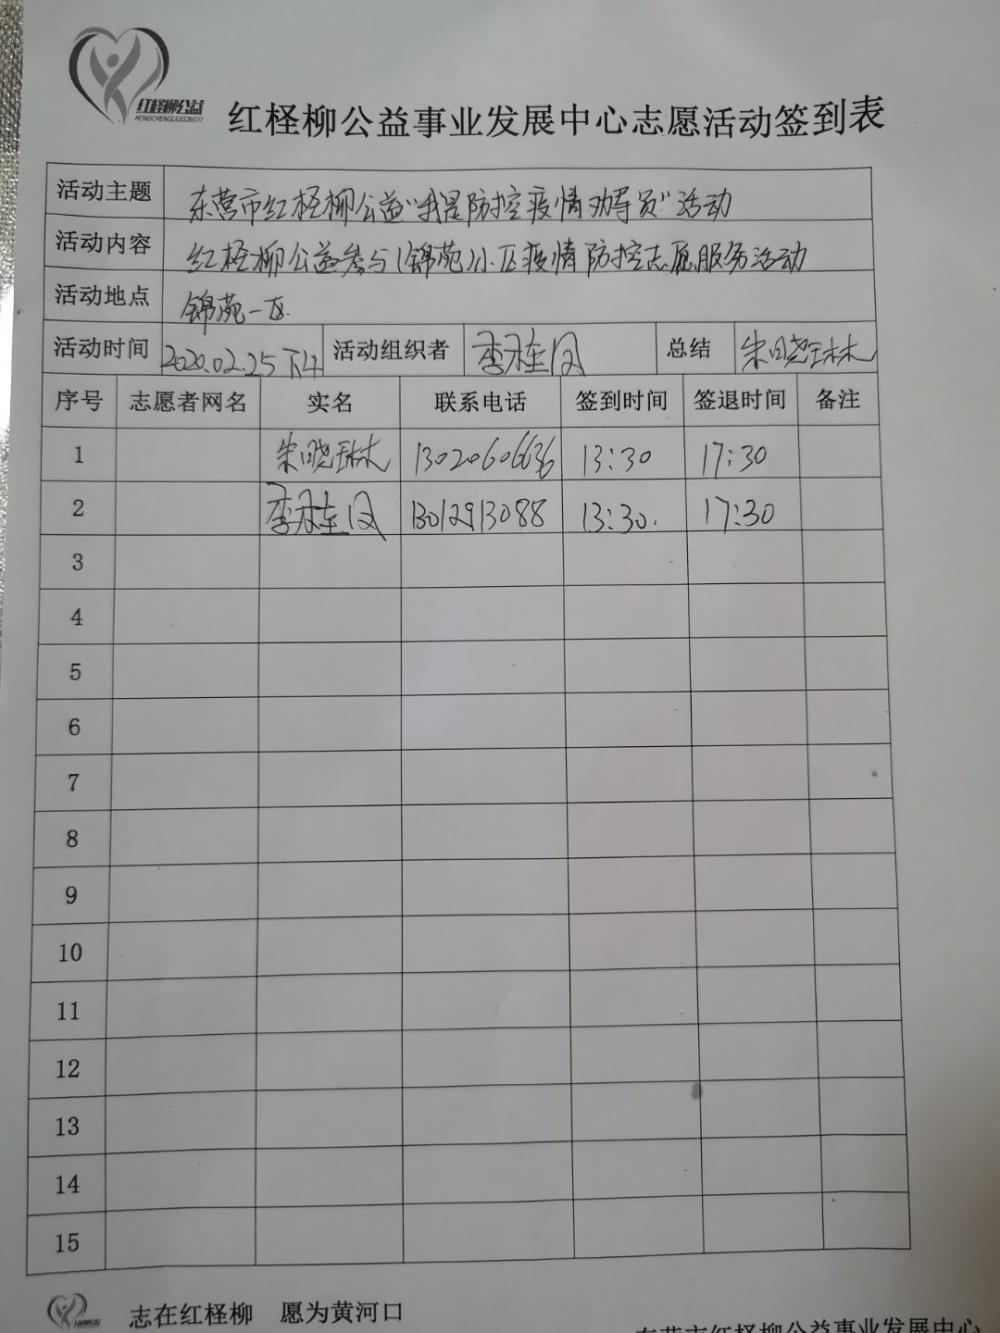 红柽柳公益
HONGCHENGLIUGONGYI
红柽柳公益事业发展中心志愿活动签到表
活动主题 东营市红柽柳公益"我是防控疫情劝导员"活动
活动内容 红柽柳公益参与(锦苑)小区疫情防控志愿服务活动
活动地点 锦苑一区
活动时间 2020.02.25下午 活动组织者 李桂凤 总结 朱晓琳
序号 志愿者网名 实名 联系电话 签到时间 签退时间 备注
1 朱晓琳 13020606636 13:30 17:30
2 李桂凤 13012913088 13:30. 17:30
3
4
5
6
7
8
9
10
11
12
13
14
15
志在红柽柳 愿为黄河口
东营市红柽柳公益事业发展中心